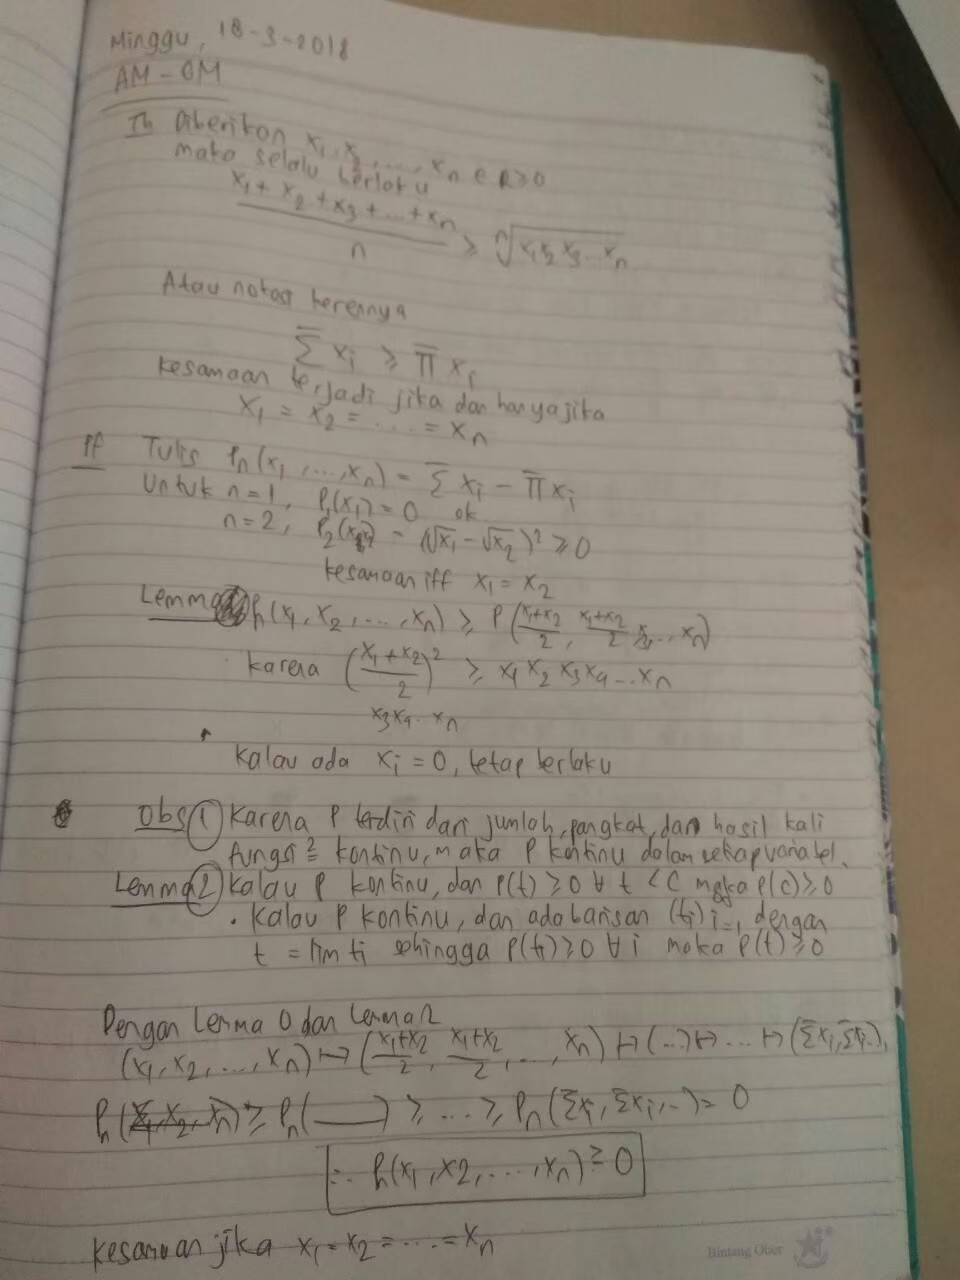 Minggu, 18-3-2018
AM - GM
Th Diberikan x₁, x₂, ..., xₙ ∈ R≥0
maka selalu berlaku
(x₁ + x₂ + x₃ + ... + xₙ)/n ≥ ⁿ√(x₁x₂x₃...xₙ)
Atau notasi kerennya
Σ̄ xᵢ ≥ Π̄ xᵢ
kesamaan terjadi jika dan hanya jika
x₁ = x₂ = .... = xₙ
Pf Tulis Pₙ(x₁, ..., xₙ) = Σ̄ xᵢ - Π̄ xᵢ
Untuk n=1, P₁(x₁) = 0 ok
n=2, P₂ = (√x₁ - √x₂)² ≥ 0
kesamaan iff x₁ = x₂
Lemma Pₙ(x₁, x₂, ..., xₙ) ≥ P((x₁+x₂)/2, (x₁+x₂)/2, x₃, .., xₙ)
karena ((x₁+x₂)/2)² ≥ x₁ x₂ x₃ x₄ ... xₙ
x₃x₄...xₙ
Kalau ada xᵢ = 0, tetap berlaku
Obs ① Karena P terdiri dari jumlah, pangkat, dan hasil kali
fungsi² kontinu, maka P kontinu dalam setiap variabel.
Lemma ② Kalau P kontinu, dan P(t) ≥ 0 ∀ t < c maka P(c) ≥ 0
• Kalau P kontinu, dan ada barisan (tᵢ)ᵢ₌₁ dengan
t = lim tᵢ sehingga P(tᵢ) ≥ 0 ∀ i maka P(t) ≥ 0
Dengan Lemma 0 dan Lemma 2
(x₁, x₂, ..., xₙ) ↦ ((x₁+x₂)/2, (x₁+x₂)/2, ..., xₙ) ↦ (...) ↦ ... ↦ (Σ̄xᵢ, Σ̄xᵢ..),
Pₙ(x₁, x₂, xₙ) ≥ Pₙ(___) ≥ .... ≥ Pₙ(Σ̄xᵢ, Σ̄xᵢ, ..) = 0
∴ Pₙ(x₁, x₂, ..., xₙ) ≥ 0
kesamaan jika x₁ = x₂ = .... = xₙ
Bintang Obor